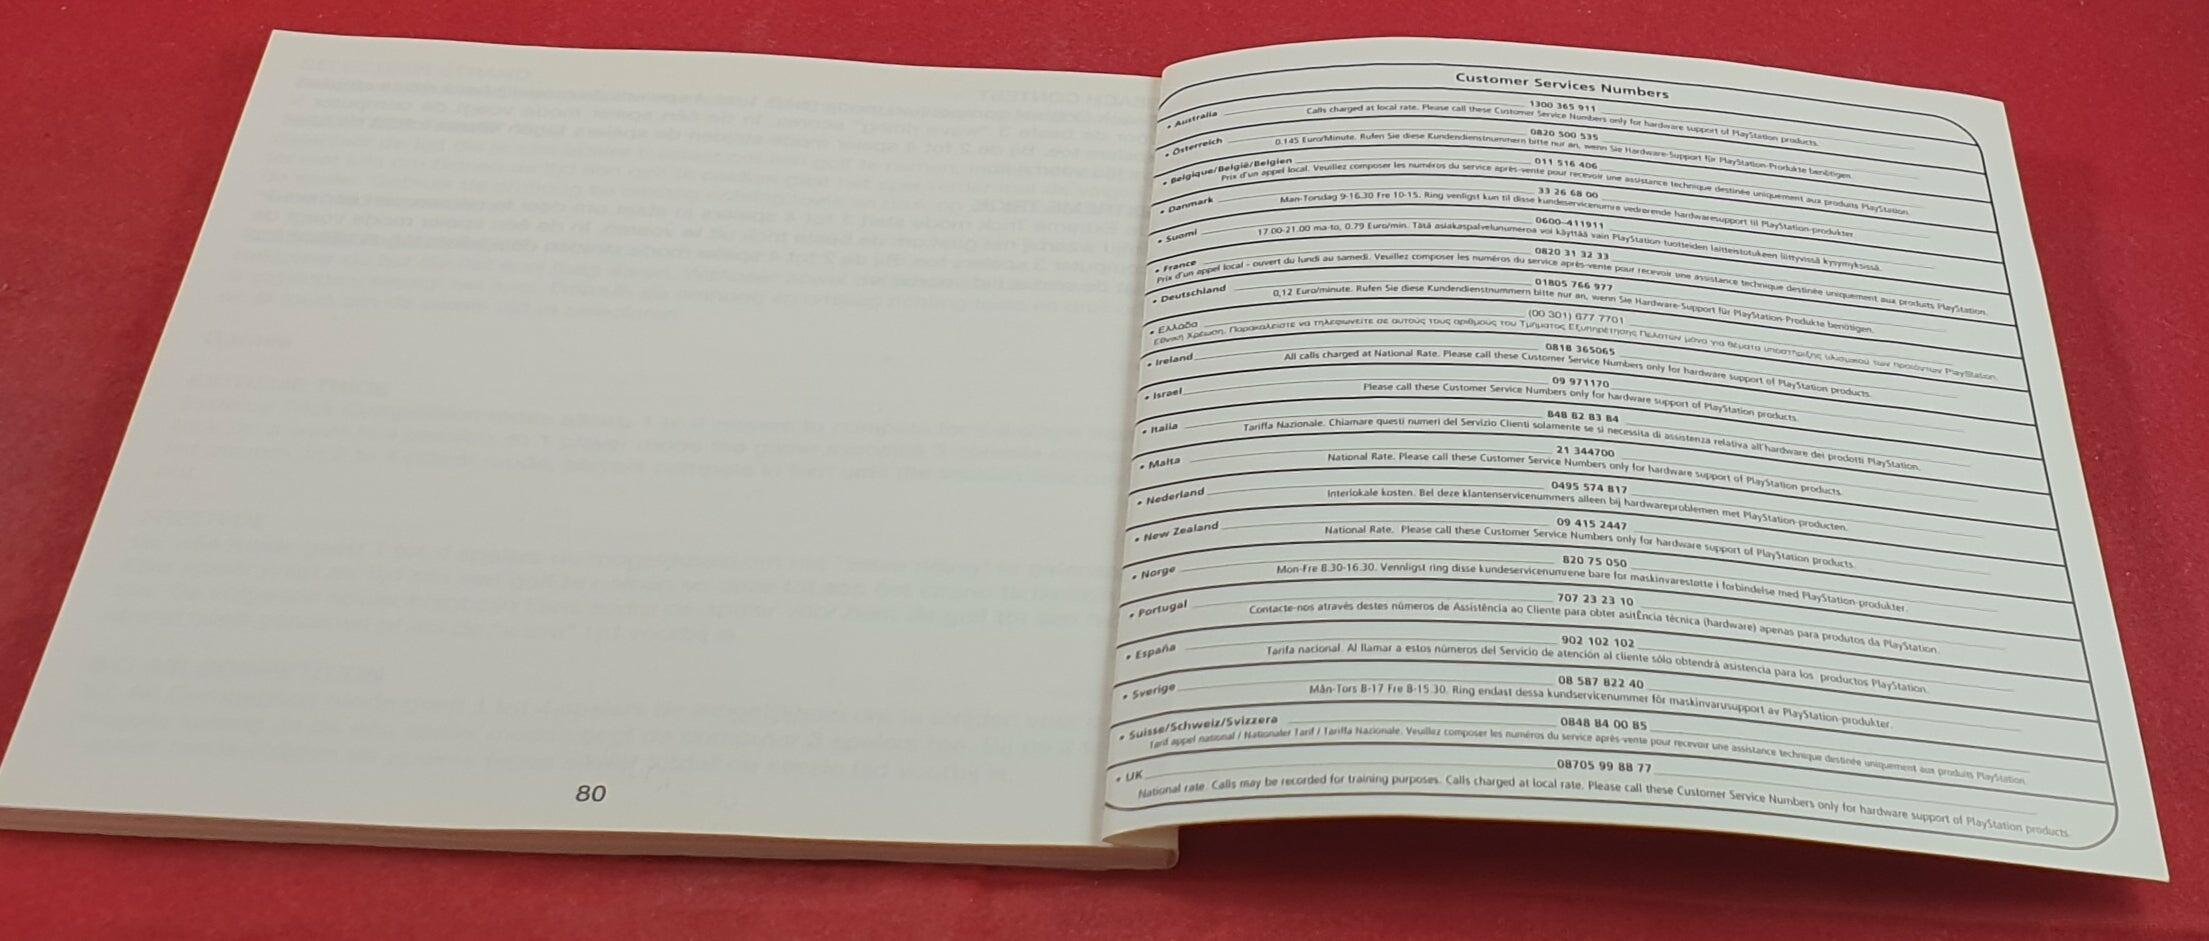 80
Customer Services Numbers
• Australia 1300 365 911
Calls charged at local rate. Please call these Customer Service Numbers only for hardware support of PlayStation products.
• Österreich 0820 500 535
0.145 Euro/Minute. Rufen Sie diese Kundendienstnummern bitte nur an, wenn Sie Hardware-Support für PlayStation-Produkte benötigen.
• Belgique/België/Belgien 011 516 406
Prix d'un appel local. Veuillez composer les numéros du service après-vente pour recevoir une assistance technique destinée uniquement aux produits PlayStation.
• Danmark 33 26 68 00
Man-Torsdag 9-16.30 Fre 10-15. Ring venligst kun til disse kundeservicenumre vedrørende hardwaresupport til PlayStation-produkter.
• Suomi 0600-411911
17.00-21.00 ma-to, 0.79 Euro/min. Tätä asiakaspalvelunumeroa voi käyttää vain PlayStation-tuotteiden laitteistotukeen liittyvissä kysymyksissä.
• France 0820 31 32 33
Prix d'un appel local - ouvert du lundi au samedi. Veuillez composer les numéros du service après-vente pour recevoir une assistance technique destinée uniquement aux produits PlayStation.
• Deutschland 01805 766 977
0,12 Euro/minute. Rufen Sie diese Kundendienstnummern bitte nur an, wenn Sie Hardware-Support für PlayStation-Produkte benötigen.
• Ελλάδα (00 301) 677 7701
Εθνική Χρέωση. Παρακαλείστε να τηλεφωνείτε σε αυτούς τους αριθμούς του Τμήματος Εξυπηρέτησης Πελατών μόνο για θέματα υποστήριξης υλισμικού των προϊόντων PlayStation.
• Ireland 0818 365065
All calls charged at National Rate. Please call these Customer Service Numbers only for hardware support of PlayStation products.
• Israel 09 971170
Please call these Customer Service Numbers only for hardware support of PlayStation products.
• Italia 848 82 83 84
Tariffa Nazionale. Chiamare questi numeri del Servizio Clienti solamente se si necessita di assistenza relativa all'hardware dei prodotti PlayStation.
• Malta 21 344700
National Rate. Please call these Customer Service Numbers only for hardware support of PlayStation products.
• Nederland 0495 574 817
Interlokale kosten. Bel deze klantenservicenummers alleen bij hardwareproblemen met PlayStation-producten.
• New Zealand 09 415 2447
National Rate. Please call these Customer Service Numbers only for hardware support of PlayStation products.
• Norge 820 75 050
Mon-Fre 8.30-16.30. Vennligst ring disse kundeservicenumrene bare for maskinvarestotte i forbindelse med PlayStation-produkter.
• Portugal 707 23 23 10
Contacte-nos através destes números de Assistência ao Cliente para obter asitÊncia técnica (hardware) apenas para produtos da PlayStation.
• España 902 102 102
Tarifa nacional. Al llamar a estos números del Servicio de atención al cliente sólo obtendrá asistencia para los productos PlayStation.
• Sverige 08 587 822 40
Mån-Tors 8-17 Fre 8-15.30. Ring endast dessa kundservicenummer för maskinvarusupport av PlayStation-produkter.
• Suisse/Schweiz/Svizzera 0848 84 00 85
Tarif appel national / Nationaler Tarif / Tariffa Nazionale. Veuillez composer les numéros du service après-vente pour recevoir une assistance technique destinée uniquement aux produits PlayStation.
• UK 08705 99 88 77
National rate. Calls may be recorded for training purposes. Calls charged at local rate. Please call these Customer Service Numbers only for hardware support of PlayStation products.